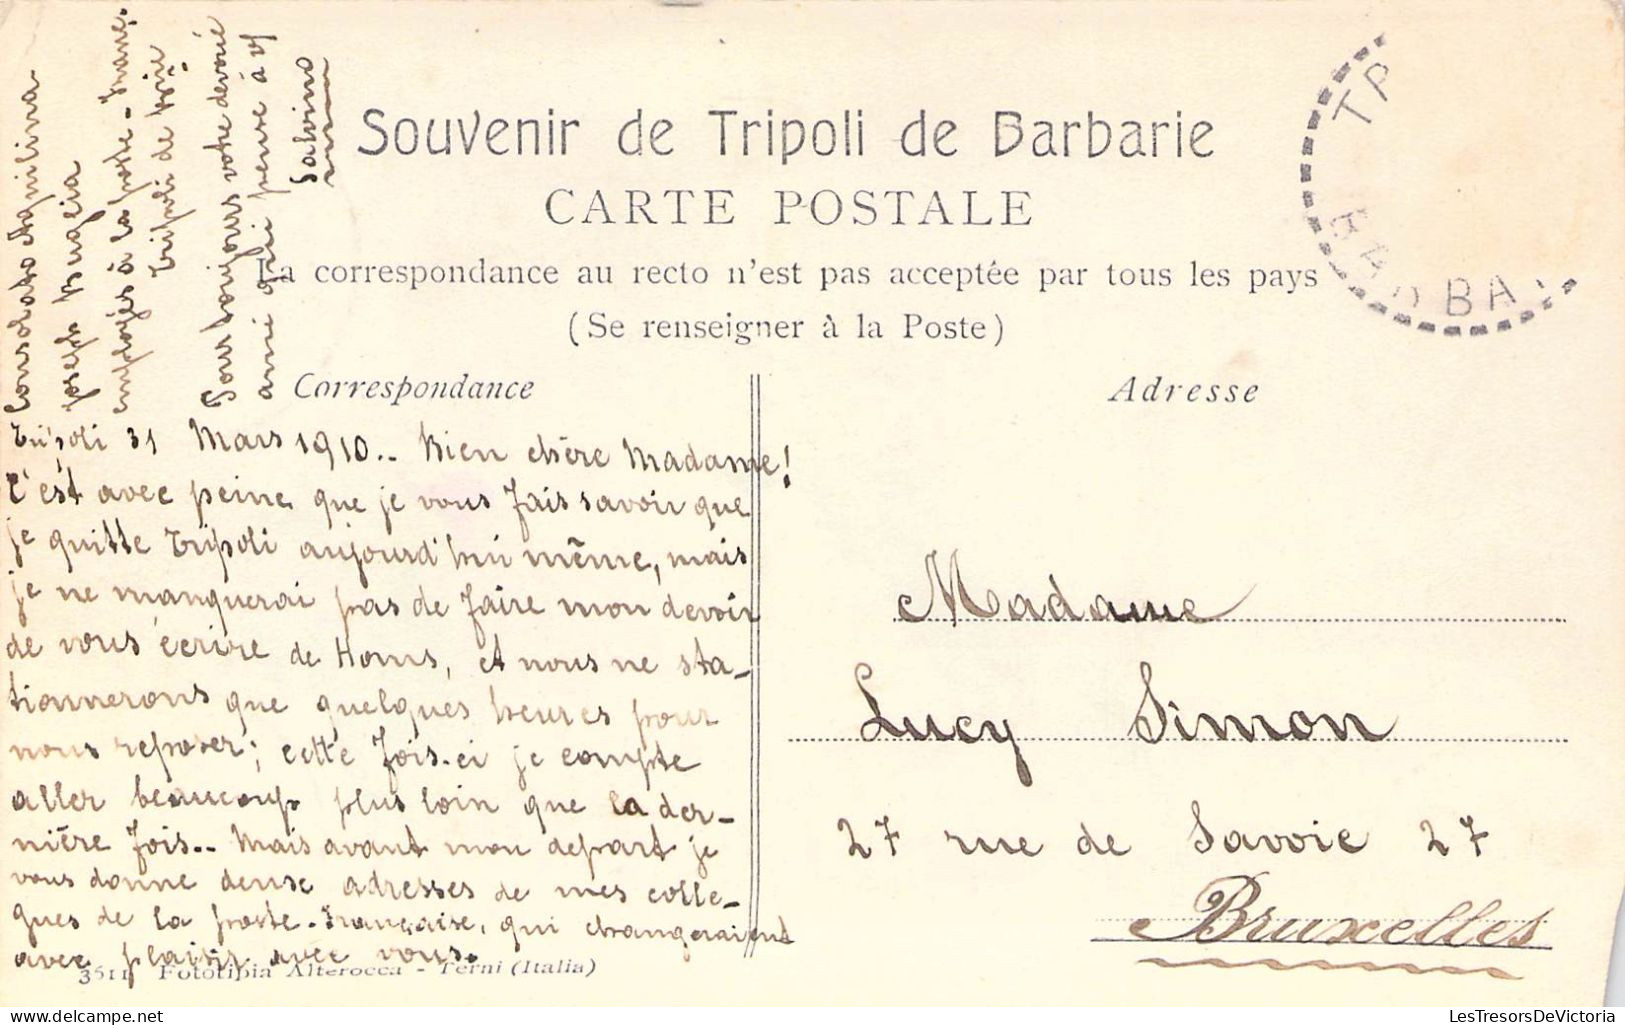 Souvenir de Tripoli de Barbarie
CARTE POSTALE
La correspondance au recto n'est pas acceptée par tous les pays
(Se renseigner à la Poste)
Correspondance
Adresse
Tripoli 31 Mars 1910.. Bien chère Madame!
C'est avec peine que je vous fais savoir que
je quitte Tripoli aujourd'hui même, mais
je ne manquerai pas de faire mon devoir
de vous écrire de Homs, et nous ne sta-
tionnerons que quelques heures pour
nous reposer; cette fois-ci je compte
aller beaucoup plus loin que la der-
nière fois.. Mais avant mon depart je
vous donne deuse adresses de mes colle-
gues de la poste-Française, qui changeraient
avec plaisir avec vous.
Consolato Aquilina
Joseph Bugeia
employés à la poste-Franç.
Tripoli de B̃rie
Pour toujours votre devoué
ami qui pense à v
Salvino
Madame
Lucy Simon
27 rue de Savoie 27
Bruxelles
3511 Fototipia Alterocca - Terni (Italia)
TP
BA
LesTresorsDeVictoria